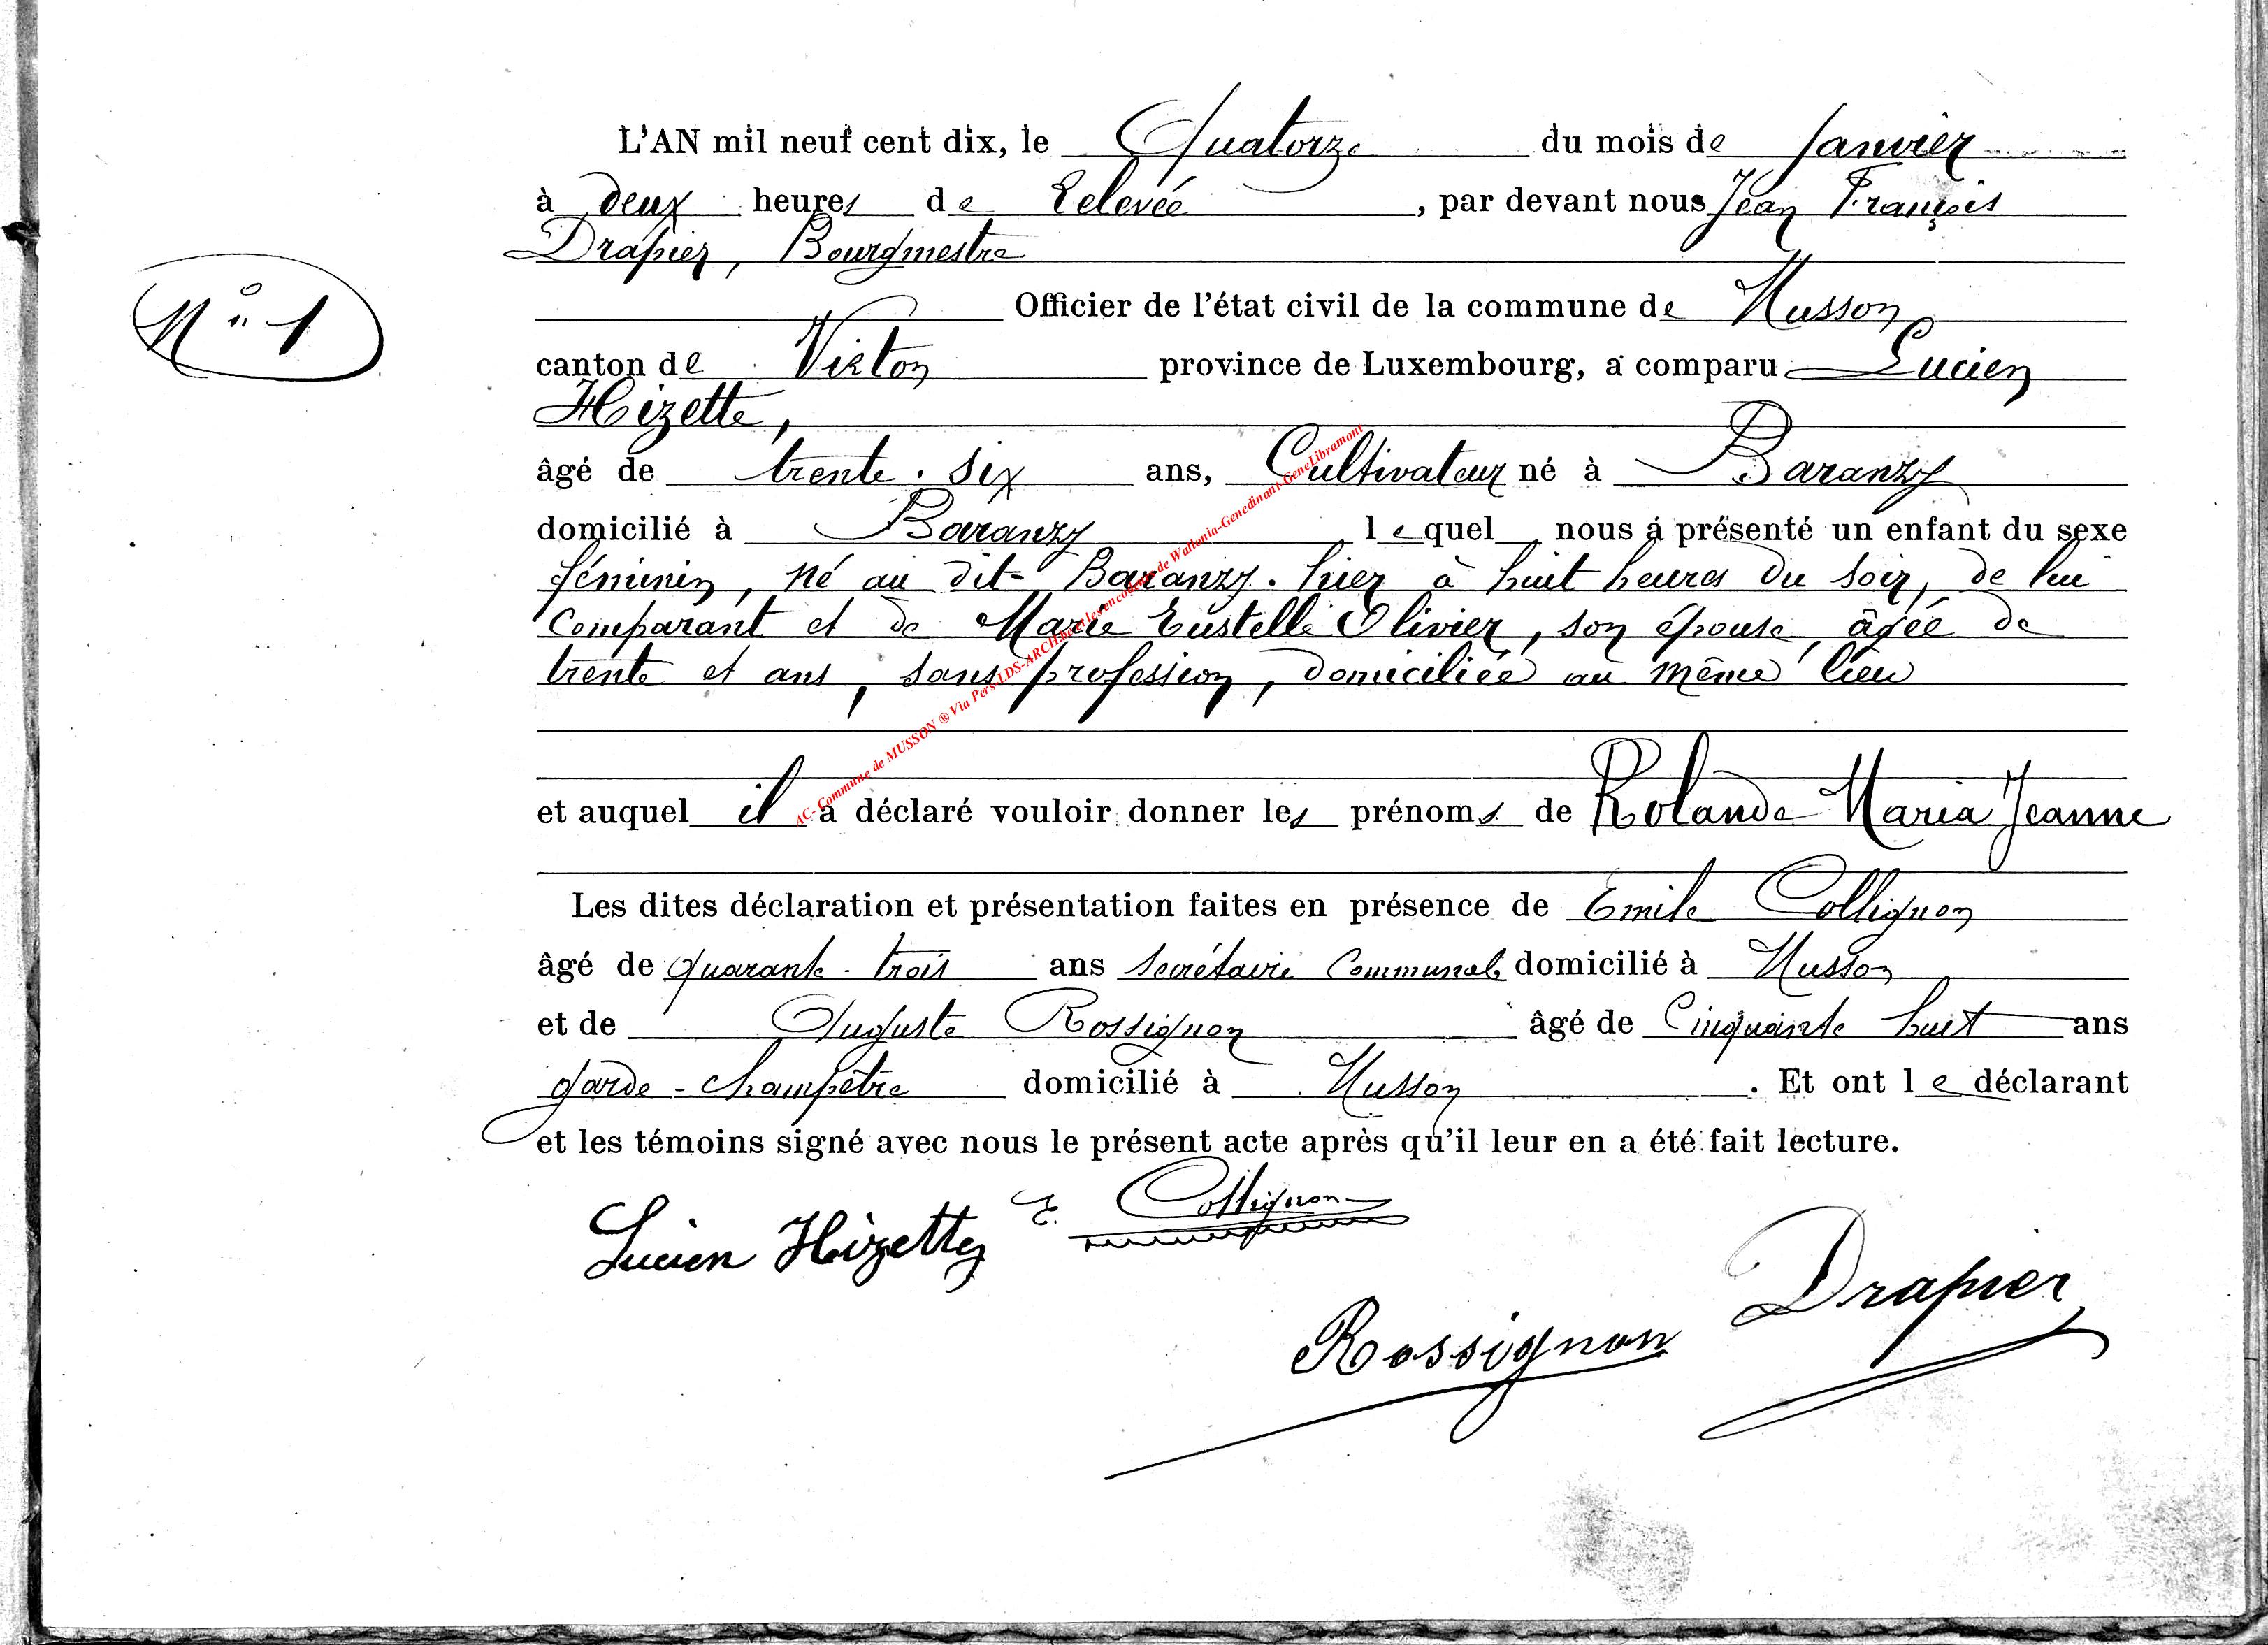 L'AN mil neuf cent dix, le Quatorze du mois de Janvier
à deux heures de Relevée, par devant nous Jean François
Drapier, Bourgmestre
N° 1
Officier de l'état civil de la commune de Musson
canton de Virton province de Luxembourg, a comparu Lucien
Hizette,
âgé de trente-six ans, Cultivateur né à Baranzy
domicilié à Baranzy lequel nous a présenté un enfant du sexe
féminin, né au dit Baranzy. hier à huit heures du soir, de lui
Comparant et de Marie Eustelle Olivier, son épouse, âgée de
trente et ans, sans profession, domiciliée au même lieu
et auquel il a déclaré vouloir donner les prénoms de Rolande Maria Jeanne
Les dites déclaration et présentation faites en présence de Emile Collignon
âgé de quarante-trois ans secrétaire Communal, domicilié à Musson
et de Auguste Rossignon âgé de Cinquante huit ans
garde-champêtre domicilié à Musson. Et ont le déclarant
et les témoins signé avec nous le présent acte après qu'il leur en a été fait lecture.
Lucien Hizette E. Collignon
Rossignon Drapier
AC- Commune de MUSSON ® Via Pers LDS-ARCH. de Wallonia-Genedinant-GeneLibramont